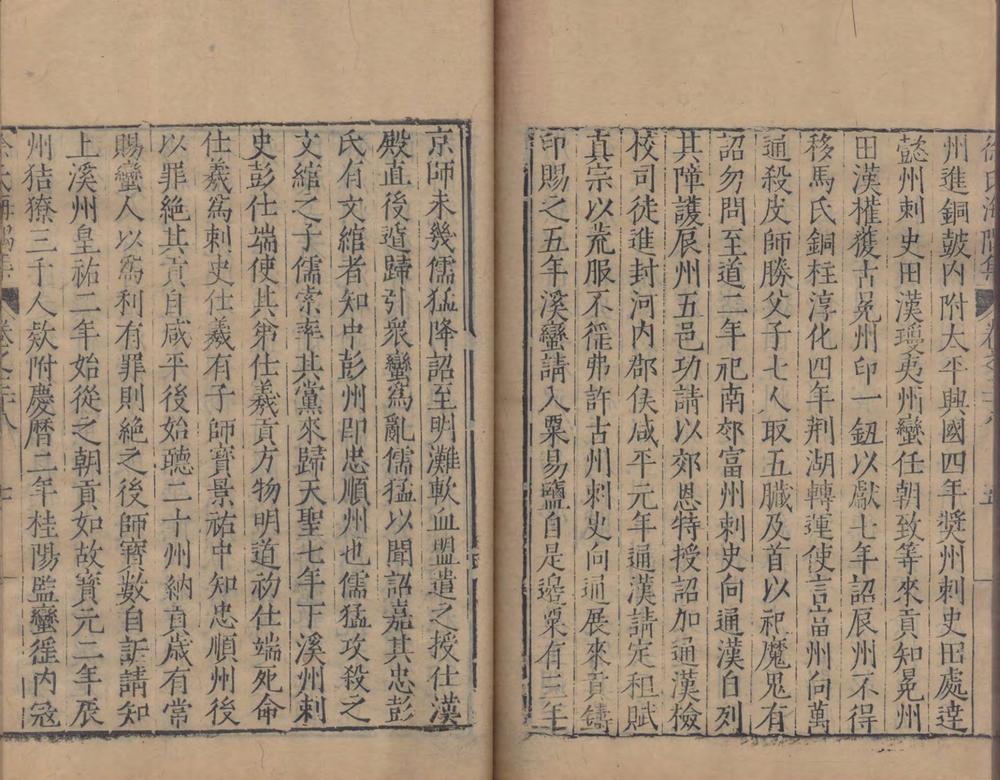 徐氏海隅集 卷之三八 五
州進銅鼓內附太平興國四年獎州刺史田處達
懿州刺史田漢瓊夷州蠻任朝致等來貢知晃州
田漢權獲古晃州印一鈕以獻七年詔辰州不得
移馬氏銅柱淳化四年荆湖轉運使言富州向萬
通殺皮師勝父子七人取五臟及首以祀魔鬼有
詔勿問至道二年祀南郊富州刺史向通漢白列
其障護辰州五邑功請以郊恩特授詔加通漢檢
校司徒進封河內郡侯咸平元年通漢請定租賦
真宗以荒服不徭弗許古州刺史向通展來貢鑄
印賜之五年溪蠻請入粟易鹽自是邊粟有三年
京師未幾儒猛降詔至明灘軟血盟遣之授仕漢
殿直後遁歸引衆蠻爲亂儒猛以聞詔嘉其忠彭
氏有文綰者知中彭州卽忠順州也儒猛攻殺之
文綰之子儒索率其黨來歸天聖七年下溪州刺
史彭仕端使其弟仕羲貢方物明道初仕端死命
仕羲爲刺史仕羲有子師寶景祐中知忠順州後
以罪絕其貢自咸平後始聽二十州納貢歲有常
賜蠻人以爲利有罪則絕之後師寶數自訴請知
上溪州皇祐二年始從之朝貢如故寶元二年辰
州狤獠三千人款附慶曆二年桂陽監蠻徭內寇
徐氏海隅集 卷之三八